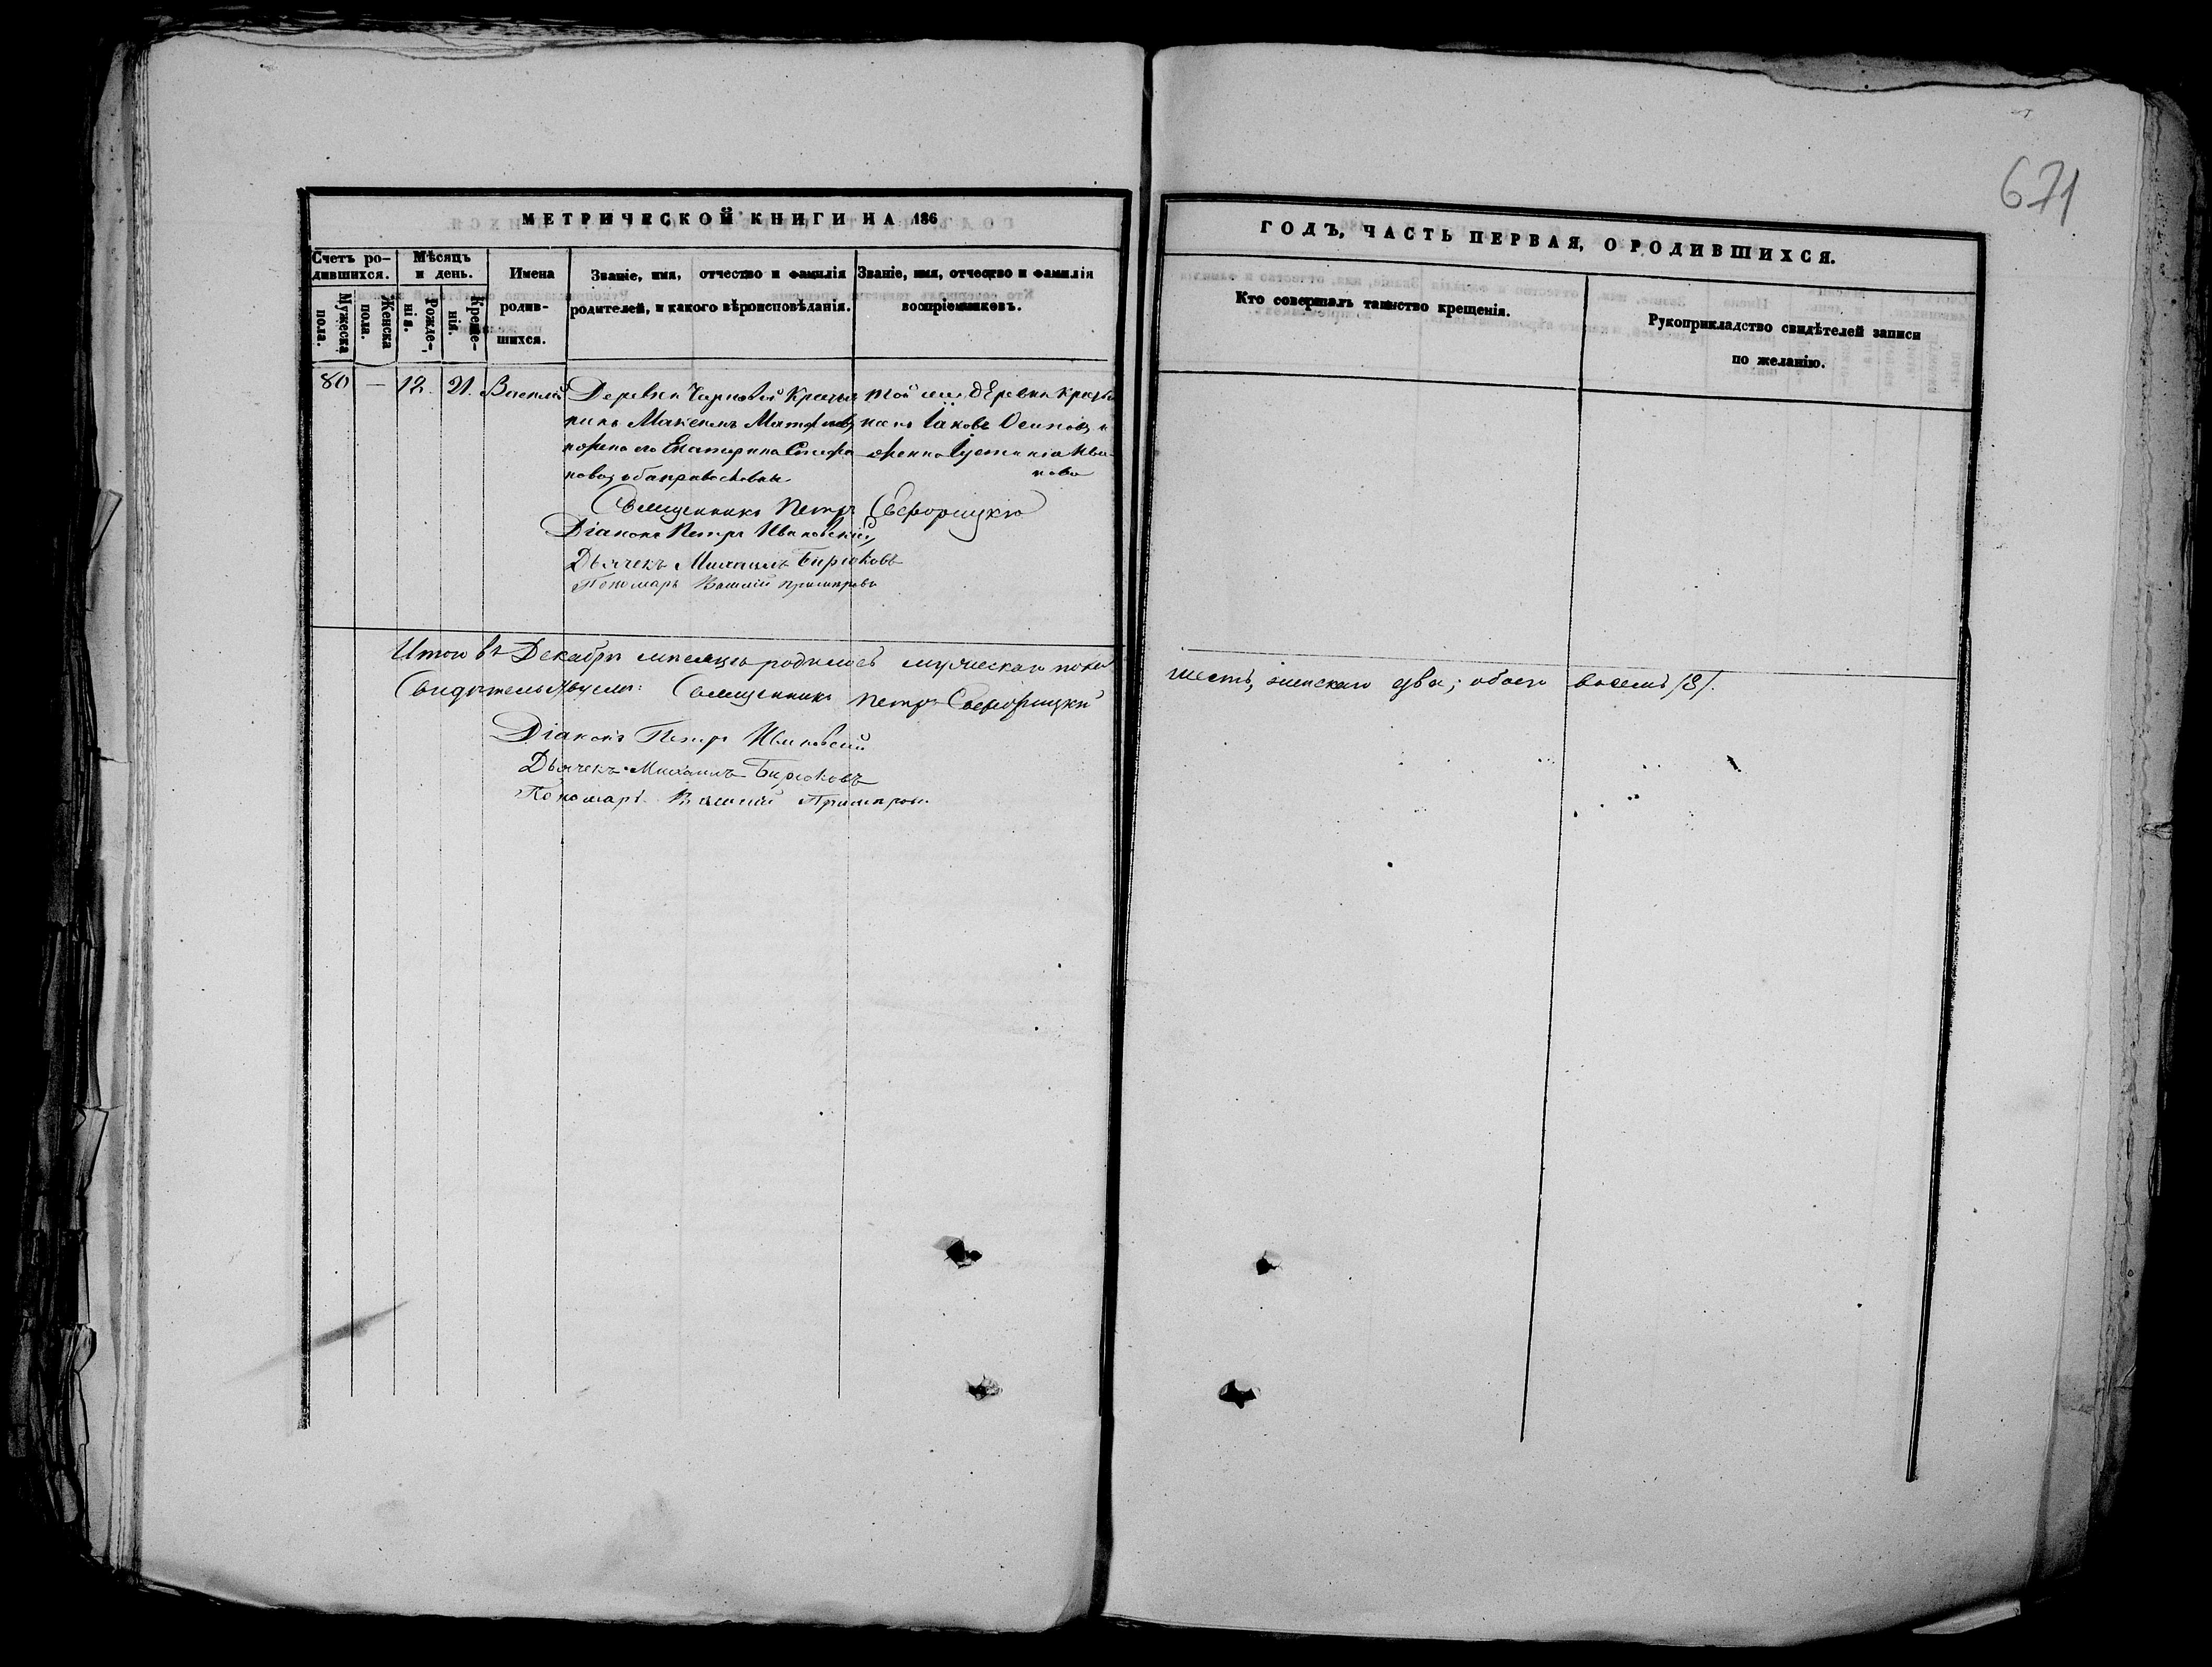 671
МЕТРИЧЕСКОЙ КНИГИ НА 186
ГОДЪ, ЧАСТЬ ПЕРВАЯ, О РОДИВШИХСЯ.
Счетъ ро-
дившихся.
Мужеска
пола.
Женска
пола.
Мѣсяцъ
и день.
Рожде-
нія.
Креще-
нія.
Имена
родив-
шихся.
Званіе, имя, отчество и фамилія
родителей, и какого вѣроисповѣданія.
Званіе, имя, отчество и фамилія
воспріемниковъ.
Кто совершалъ таинство крещенія.
Рукоприкладство свидѣтелей записи
по желанію.
80 — 12. 21. Василій
Деревни Крестья
нинъ Максимъ
жена его Екатерина Стефа
нова, оба православные
той же деревни Крестья
нинъ Іаковъ Осиповъ и
жена Іустинія Ива
нова
Священникъ Петръ
Діаконъ Петръ Ивановскій
Дьячекъ Михаилъ Бирюковъ
Пономарь Василій
Итого въ Декабрѣ мѣсяцѣ родилось мужескаго пола
шесть, женскаго два; обоего восемь /8/.
Свидѣтельствуемъ: Священникъ Петръ
Діаконъ Петръ Ивановскій
Дьячекъ Михаилъ Бирюковъ
Пономарь Василій